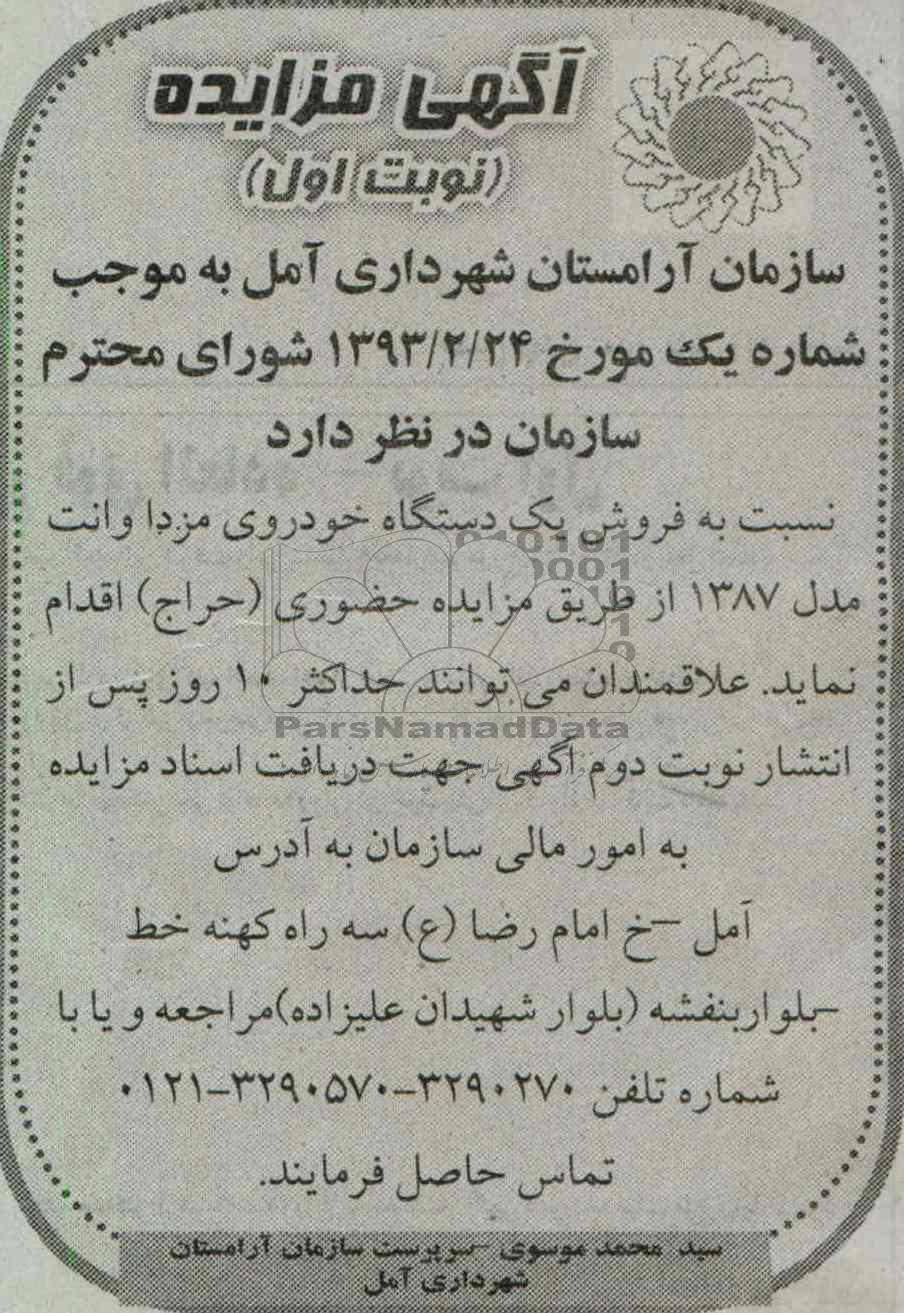 آگهی مزایده
(نوبت اول)
سازمان آرامستان شهرداری آمل به موجب
شماره یک مورخ ۱۳۹۳/۲/۲۴ شورای محترم
سازمان در نظر دارد
نسبت به فروش یک دستگاه خودروی مزدا وانت
مدل ۱۳۸۷ از طریق مزایده حضوری (حراج) اقدام
نماید. علاقمندان می توانند حداکثر ۱۰ روز پس از
انتشار نوبت دوم آگهی جهت دریافت اسناد مزایده
به امور مالی سازمان به آدرس
آمل –خ امام رضا (ع) سه راه کهنه خط
–بلواربنفشه (بلوار شهیدان علیزاده)مراجعه و یا با
شماره تلفن ۳۲۹۰۲۷۰–۳۲۹۰۵۷۰–۰۱۲۱
تماس حاصل فرمایند.
سید محمد موسوی –سرپرست سازمان آرامستان
شهرداری آمل
ParsNamadData